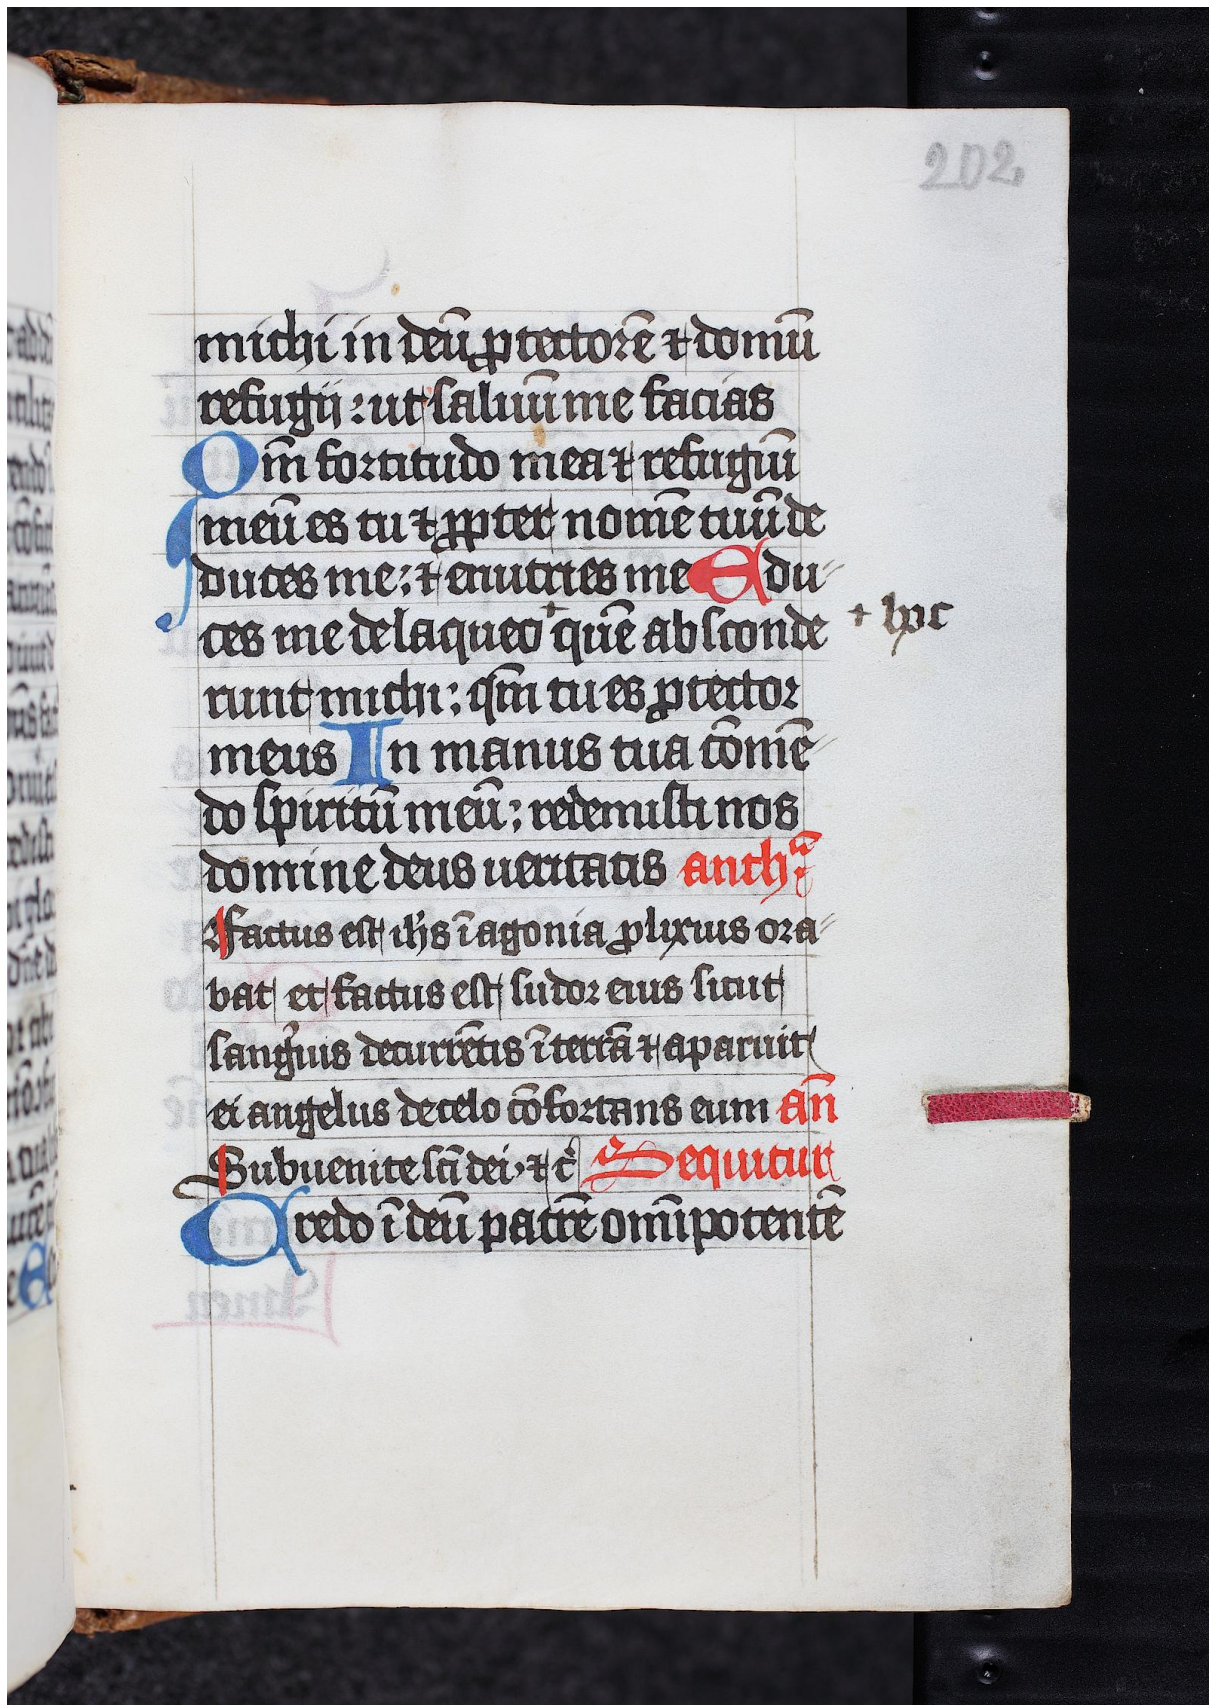 202
michi in deū ꝓtectorē ⁊ domū
refugij : ut saluū me facias
Qm̄ fortitudo mea ⁊ refugiū
meū es tu ⁊ ꝓpter nomē tuū de
duces me : ⁊ enutries me Edu⸗
ces me de laqueo + quē absconde
+ hoc
runt michi ; qm̄ tu es ꝓtector
meus In manus tua cōmē⸗
do spiritū meū ; redemisti nos
domine deus ueritatis anthᵃ
Factus est ihs̄ ī agonia ꝓlixius ora⸗
bat et factus est sudor eius sicut
sanguis decurrētis ī terrā ⁊ aparuit
ei angelus de celo cōfortans eum an̄
Subuenite sc̄i dei · ⁊ c̄ Sequitur
Credo ī deū patrē omīpotentē